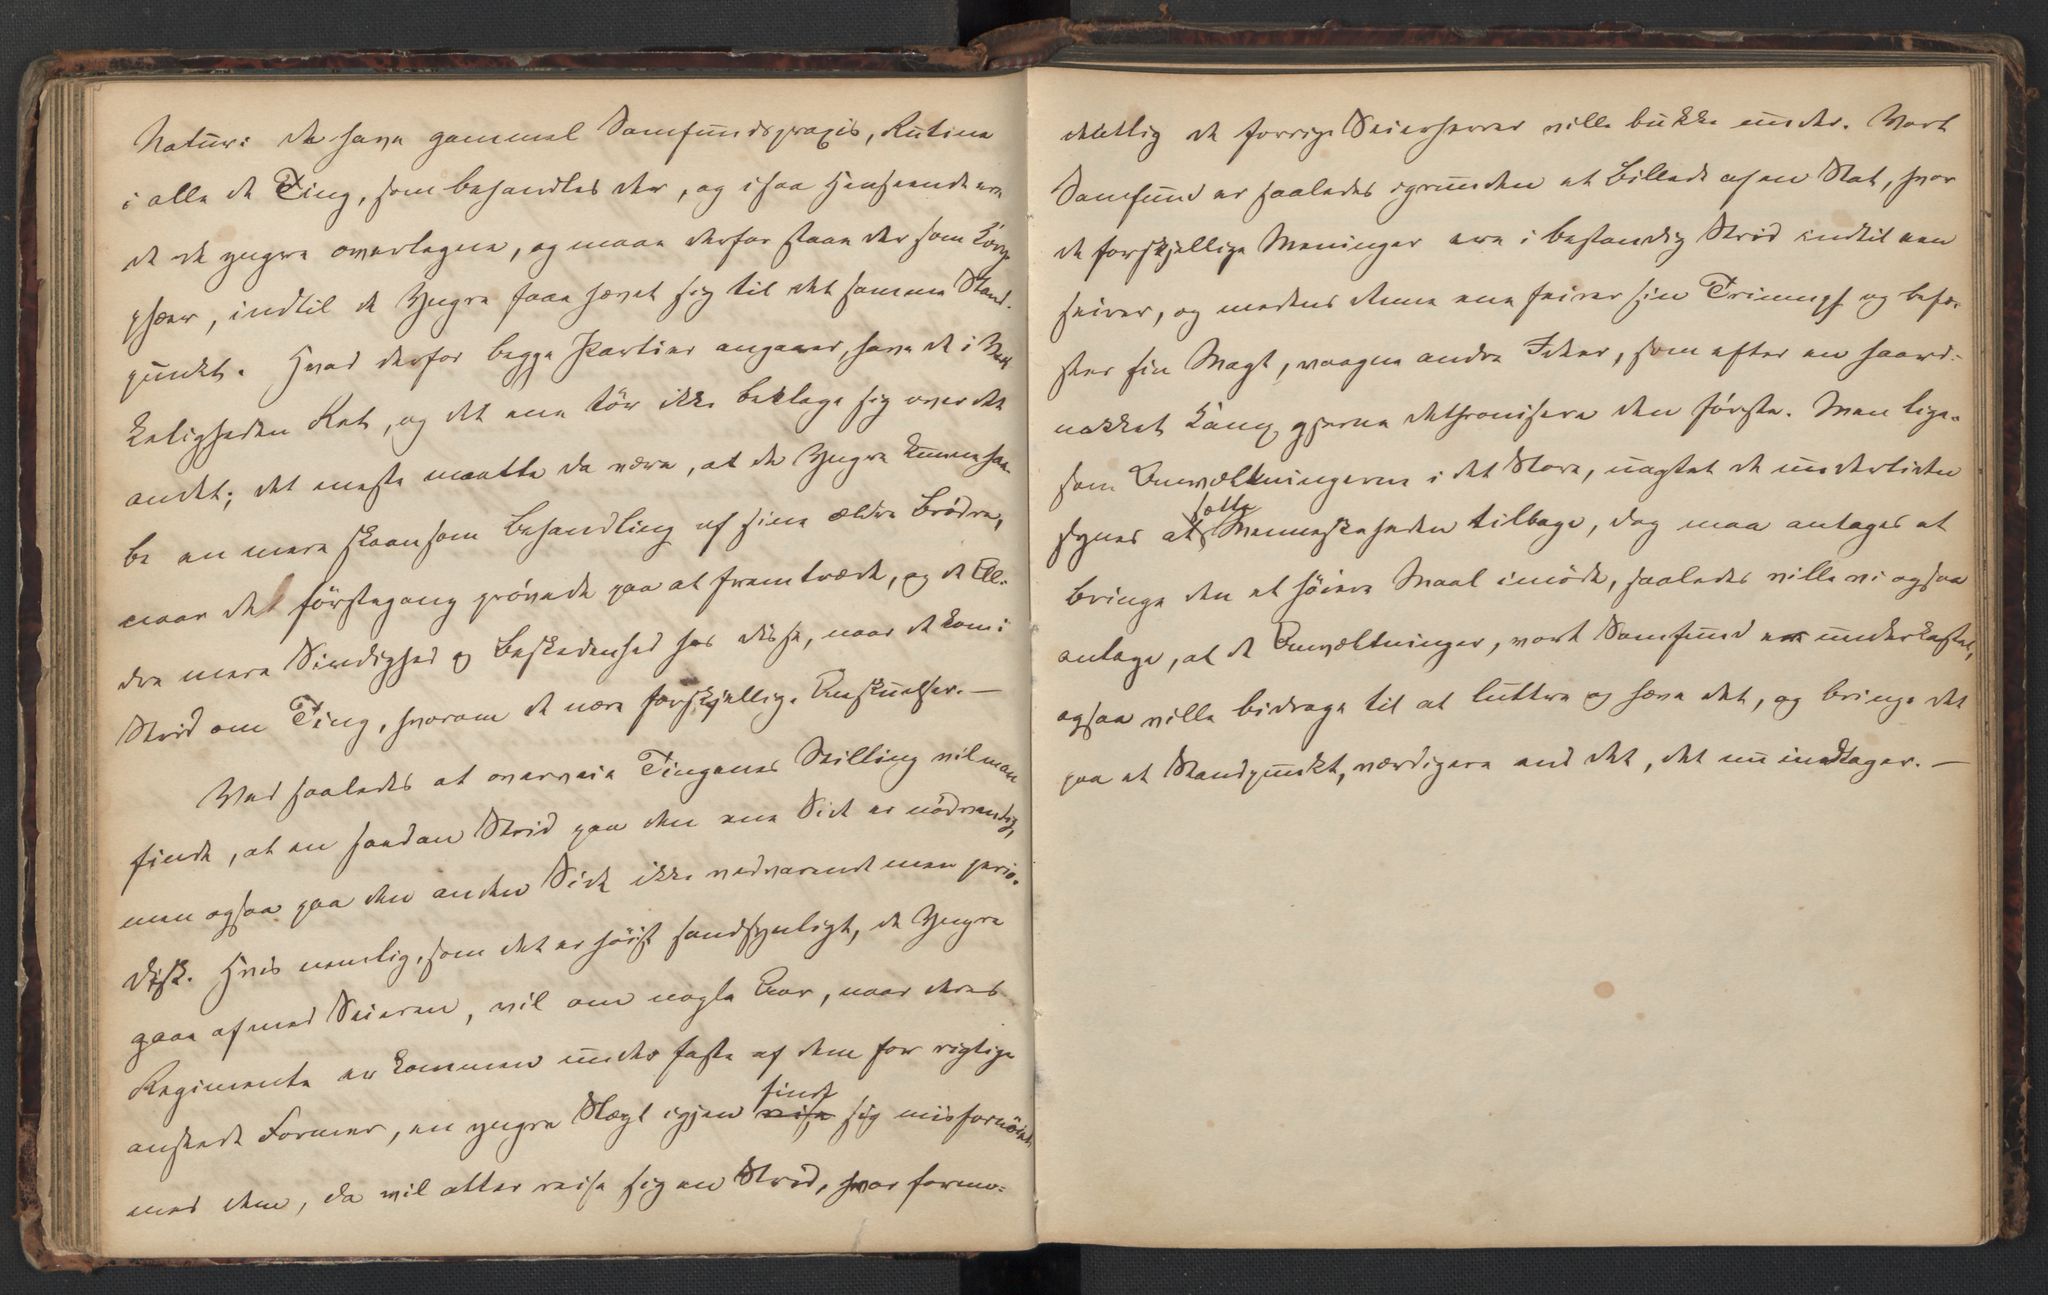 Natur: de have gammel Samfundspraxis, Rutine
i alle de Ting, som behandles der, og i saa Henseende ere
de de yngre overlegne, og maae derfor staae der som Cory-
phæer, indtil de Yngre faae hævet sig til det samme Stand-
punkt. Hvad derfor begge Partier angaaer, have de i Vir-
keligheden Ret, og det ene tör ikke beklage sig over det
andet; det meste maatte da være, at de Yngre kunne haa-
be en mere skaansom Behandling af sine ældre Brödre,
naar de förstegang prövede paa at fremtræde, og de Æl-
dre mere Sindighed og Beskedenhed hos disse, naar de kom i
Strid om Ting, hvorom de nære forskjellige Anskuelser. —
Ved saaledes at overveie Tingenes Stilling vil man
finde, at en saadan Strid paa den ene Side er nödvendig,
men ogsaa paa den anden Side ikke vedvarende men perio-
disk. Hvis nemlig, som det er höist sandsynligt, de Yngre
gaae af med Seieren, vil om nogle Aar, naar deres
Regimente er kommen under faste af dem for rigtige
ansete Former, en yngre Slægt igjen finde sig misfornöiet
med dem, da vil atter reise sig en Strid, hvor formo-
dentlig de forrige Seierherrer ville bukke under. Vort
Samfund er saaledes igrunden et Billede af en Stat, hvor
de forskjellige Meninger ere i bestandig Strid indtil een
seirer, og medens denne ene feirer sin Triumf og befæ-
ster sin Magt, vaagne andre Ideer, som efter en haard-
nakket Kamp gjerne dethronisere den förste. Men lige-
som Omvæltningerne i det Store, uagtet de undertiden
synes at sætte Menneskeheden tilbage, dog maa antages at
bringe den et höiere Maal imöde, saaledes ville vi ogsaa
antage, at de Omvæltninger, vort Samfund er underkastet,
ogsaa ville bidrage til at luttre og hæve det, og bringe det
paa et Standpunkt, værdigere end det, det nu indtager. —